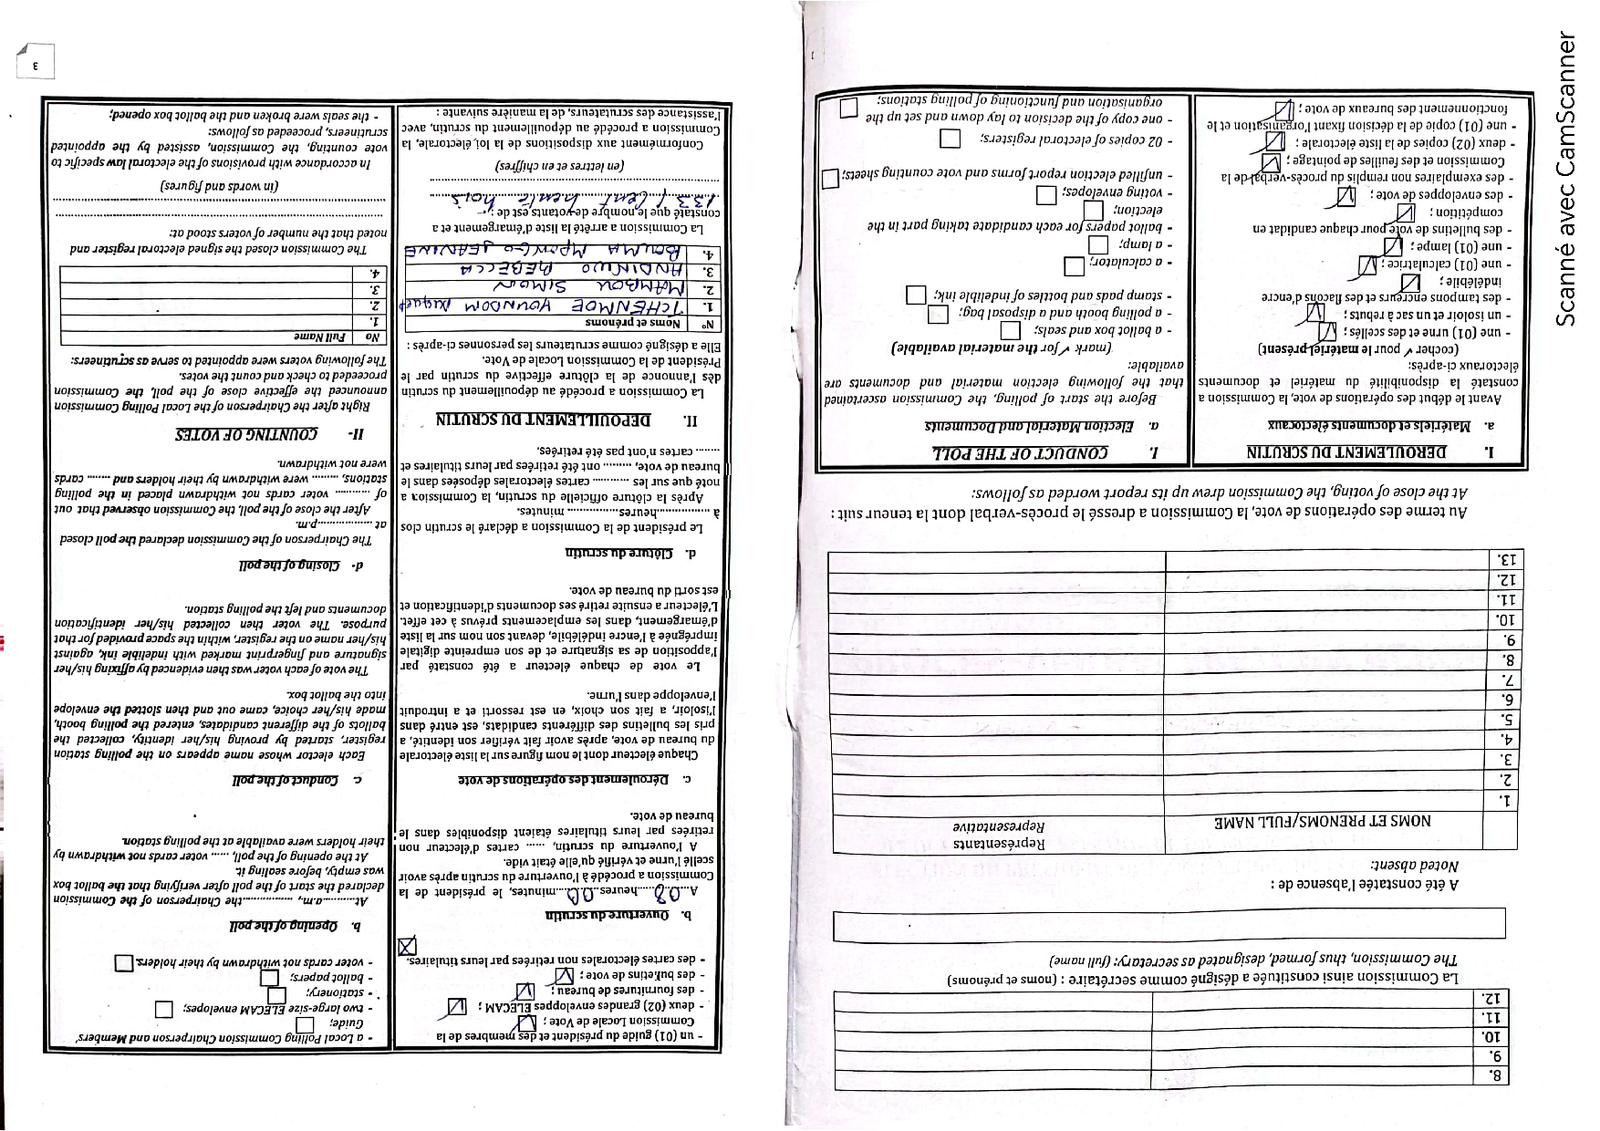 8.
9.
10.
11.
12.
La Commission ainsi constituée a désigné comme secrétaire : (noms et prénoms)
The Commission, thus formed, designated as secretary: (full name)
A été constatée l'absence de :
Noted absent:
NOMS ET PRENOMS/FULL NAME
Représentants
Representative
1.
2.
3.
4.
5.
6.
7.
8.
9.
10.
11.
12.
13.
Au terme des opérations de vote, la Commission a dressé le procès-verbal dont la teneur suit :
At the close of voting, the Commission drew up its report worded as follows:
I. DEROULEMENT DU SCRUTIN
a. Matériels et documents électoraux
Avant le début des opérations de vote, la Commission a
constaté la disponibilité du matériel et documents
électoraux ci-après:
(cocher ✓ pour le matériel présent)
- une (01) urne et des scellés ;
- un isoloir et un sac à rebuts ;
- des tampons encreurs et des flacons d'encre
indélébile ;
- une (01) calculatrice ;
- une (01) lampe ;
- des bulletins de vote pour chaque candidat en
compétition ;
- des enveloppes de vote ;
- des exemplaires non remplis du procès-verbal de la
Commission et des feuilles de pointage ;
- deux (02) copies de la liste électorale ;
- une (01) copie de la décision fixant l'organisation et le
fonctionnement des bureaux de vote ;
I. CONDUCT OF THE POLL
a. Election Material and Documents
Before the start of polling, the Commission ascertained
that the following election material and documents are
available:
(mark ✓ for the material available)
- a ballot box and seals;
- a polling booth and a disposal bag;
- stamp pads and bottles of indelible ink;
- a calculator;
- a lamp;
- ballot papers for each candidate taking part in the
election;
- voting envelopes;
- unfilled election report forms and vote counting sheets;
- 02 copies of electoral registers;
- one copy of the decision to lay down and set up the
organisation and functioning of polling stations;
- un (01) guide du président et des membres de la
Commission Locale de Vote ;
- deux (02) grandes enveloppes ELECAM ;
- des fournitures de bureau ;
- des bulletins de vote ;
- des cartes électorales non retirées par leurs titulaires.
b. Ouverture du scrutin
A...08...heures...00...minutes, le président de la
Commission a procédé à l'ouverture du scrutin après avoir
scellé l'urne et vérifié qu'elle était vide.
A l'ouverture du scrutin, ...... cartes d'électeur non
retirées par leurs titulaires étaient disponibles dans le
bureau de vote.
c. Déroulement des opérations de vote
Chaque électeur dont le nom figure sur la liste électorale
du bureau de vote, après avoir fait vérifier son identité, a
pris les bulletins des différents candidats, est entré dans
l'isoloir, a fait son choix, en est ressorti et a introduit
l'enveloppe dans l'urne.
Le vote de chaque électeur a été constaté par
l'apposition de sa signature et de son empreinte digitale
imprégnée à l'encre indélébile, devant son nom sur la liste
d'émargement, dans les emplacements prévus à cet effet.
L'électeur a ensuite retiré ses documents d'identification et
est sorti du bureau de vote.
d. Clôture du scrutin
Le président de la Commission a déclaré le scrutin clos
à ...............heures............... minutes.
Après la clôture officielle du scrutin, la Commission a
noté que sur les .......... cartes électorales déposées dans le
bureau de vote, ........ ont été retirées par leurs titulaires et
....... cartes n'ont pas été retirées.
II. DEPOUILLEMENT DU SCRUTIN
La Commission a procédé au dépouillement du scrutin
dès l'annonce de la clôture effective du scrutin par le
Président de la Commission Locale de Vote.
Elle a désigné comme scrutateurs les personnes ci-après :
N° Noms et prénoms
1. TCHENMOE YOUNDOM
2. MAMBOU SIMON
3. ANDINWO REBECCA
4. BOUMA MPONGO JEANNINE
La Commission a arrêté la liste d'émargement et a
constaté que le nombre de votants est de :
133 / cent trente trois
(en lettres et en chiffres)
Conformément aux dispositions de la loi électorale, la
Commission a procédé au dépouillement du scrutin, avec
l'assistance des scrutateurs, de la manière suivante :
- a Local Polling Commission Chairperson and Members'
Guide;
- two large-size ELECAM envelopes;
- stationery;
- ballot papers;
- voter cards not withdrawn by their holders.
b. Opening of the poll
At..........a.m., ................the Chairperson of the Commission
declared the start of the poll after verifying that the ballot box
was empty, before sealing it.
At the opening of the poll, ...... voter cards not withdrawn by
their holders were available at the polling station.
c. Conduct of the poll
Each elector whose name appears on the polling station
register, started by proving his/her identity, collected the
ballots of the different candidates, entered the polling booth,
made his/her choice, came out and then slotted the envelope
into the ballot box.
The vote of each voter was then evidenced by affixing his/her
signature and fingerprint marked with indelible ink, against
his/her name on the register, within the space provided for that
purpose. The voter then collected his/her identification
documents and left the polling station.
d- Closing of the poll
The Chairperson of the Commission declared the poll closed
at .................p.m.
After the close of the poll, the Commission observed that out
of .......... voter cards not withdrawn placed in the polling
stations, ........ were withdrawn by their holders and ....... cards
were not withdrawn.
II- COUNTING OF VOTES
Right after the Chairperson of the Local Polling Commission
announced the effective close of the poll, the Commission
proceeded to check and count the votes.
The following voters were appointed to serve as scrutineers:
No Full Name
1.
2.
3.
4.
The Commission closed the signed electoral register and
noted that the number of voters stood at:
(in words and figures)
In accordance with provisions of the electoral law specific to
vote counting, the Commission, assisted by the appointed
scrutineers, proceeded as follows:
- the seals were broken and the ballot box opened;
3
Scanné avec CamScanner